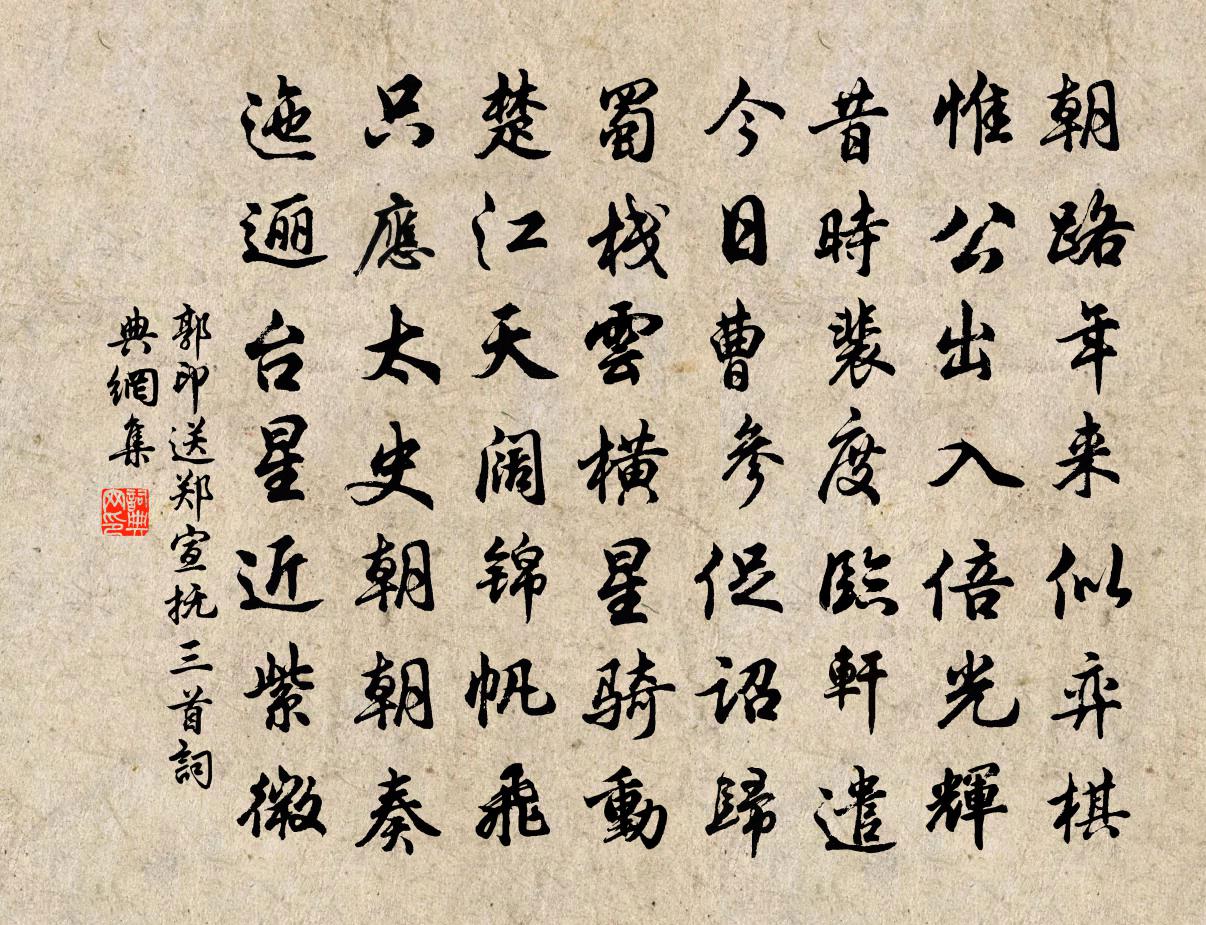 朝路年来似弈棋
惟公出入倍光輝
昔時裴度臨軒遣
今日曹參促詔歸
蜀栈雲横星骑動
楚江天阔锦帆飛
只應太史朝朝奏
迤逦台星近紫微
郭印送郑宣抚三首詞
典網集
詞典网印